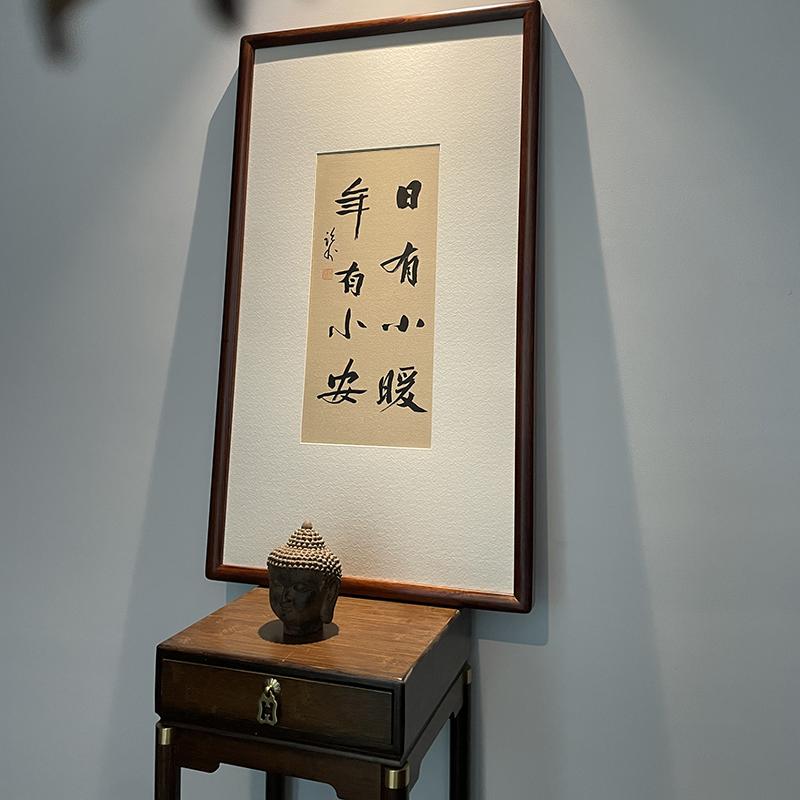 日有小暖
年有小安